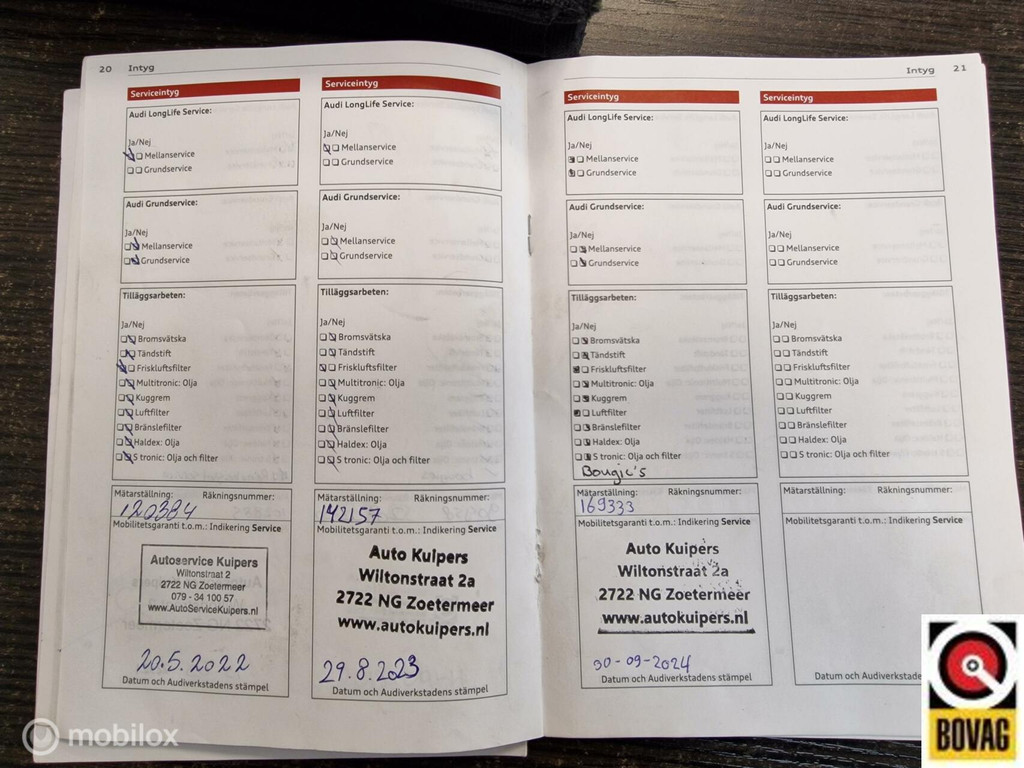 20 Intyg
Serviceintyg
Audi LongLife Service:
Ja/Nej
Mellanservice
Grundservice
Audi Grundservice:
Ja/Nej
Mellanservice
Grundservice
Tilläggsarbeten:
Ja/Nej
Bromsvätska
Tändstift
Friskluftsfilter
Multitronic: Olja
Kuggrem
Luftfilter
Bränslefilter
Haldex: Olja
S tronic: Olja och filter
Mätarställning: Räkningsnummer:
120384
Mobilitetsgaranti t.o.m.: Indikering Service
Autoservice Kuipers
Wiltonstraat 2
2722 NG Zoetermeer
079 - 34 100 57
www.AutoServiceKuipers.nl
20.5.2022
Datum och Audiverkstadens stämpel
Serviceintyg
Audi LongLife Service:
Ja/Nej
Mellanservice
Grundservice
Audi Grundservice:
Ja/Nej
Mellanservice
Grundservice
Tilläggsarbeten:
Ja/Nej
Bromsvätska
Tändstift
Friskluftsfilter
Multitronic: Olja
Kuggrem
Luftfilter
Bränslefilter
Haldex: Olja
S tronic: Olja och filter
Mätarställning: Räkningsnummer:
142157
Mobilitetsgaranti t.o.m.: Indikering Service
Auto Kuipers
Wiltonstraat 2a
2722 NG Zoetermeer
www.autokuipers.nl
29.8.2023
Datum och Audiverkstadens stämpel
Intyg 21
Serviceintyg
Audi LongLife Service:
Ja/Nej
Mellanservice
Grundservice
Audi Grundservice:
Ja/Nej
Mellanservice
Grundservice
Tilläggsarbeten:
Ja/Nej
Bromsvätska
Tändstift
Friskluftsfilter
Multitronic: Olja
Kuggrem
Luftfilter
Bränslefilter
Haldex: Olja
S tronic: Olja och filter
Bougie's
Mätarställning: Räkningsnummer:
169333
Mobilitetsgaranti t.o.m.: Indikering Service
Auto Kuipers
Wiltonstraat 2a
2722 NG Zoetermeer
www.autokuipers.nl
30-09-2024
Datum och Audiverkstadens stämpel
Serviceintyg
Audi LongLife Service:
Ja/Nej
Mellanservice
Grundservice
Audi Grundservice:
Ja/Nej
Mellanservice
Grundservice
Tilläggsarbeten:
Ja/Nej
Bromsvätska
Tändstift
Friskluftsfilter
Multitronic: Olja
Kuggrem
Luftfilter
Bränslefilter
Haldex: Olja
S tronic: Olja och filter
Mätarställning: Räkningsnummer:
Mobilitetsgaranti t.o.m.: Indikering Service
Datum och Audiverkstade
mobilox
BOVAG